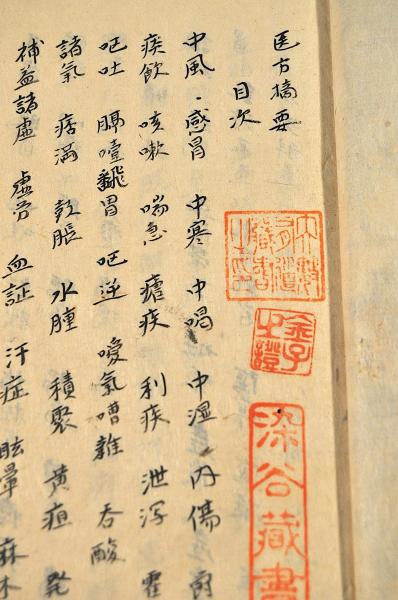 医方摘要
目次
中風・感冒 中寒 中暍 中湿 内傷
痰飲 咳嗽 喘急 瘧疾 利疾 泄瀉 霍
呕吐 膈噎 飜胃 呃逆 噯氣 嘈雜 吞酸
諸氣 痞満 鼓脹 水腫 積聚 黄疸 発
補益諸虚 虚労 血証 汗症 眩暈 麻木
染谷藏書